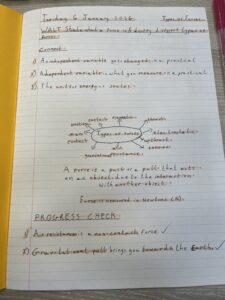 Tuesday 6 January 2026 Types of forces
WALT State what a force is & identify different types of
forces
Connect
1) An independent variable you change in a practical
2) A dependent variable is what you measure in a practical
3) The unit for energy is Joules
magnetic
friction
thrust
non
contact
Types of forces
electrostatic
contact
upthrust
gravitational
air
resistance
A force is a push or a pull that acts
on an object due to the interaction
with another object.
Force is measured in Newtons (N)
PROGRESS CHECK
1) Air resistance is a non-contact force
2) Gravitational pull brings you towards the Earth